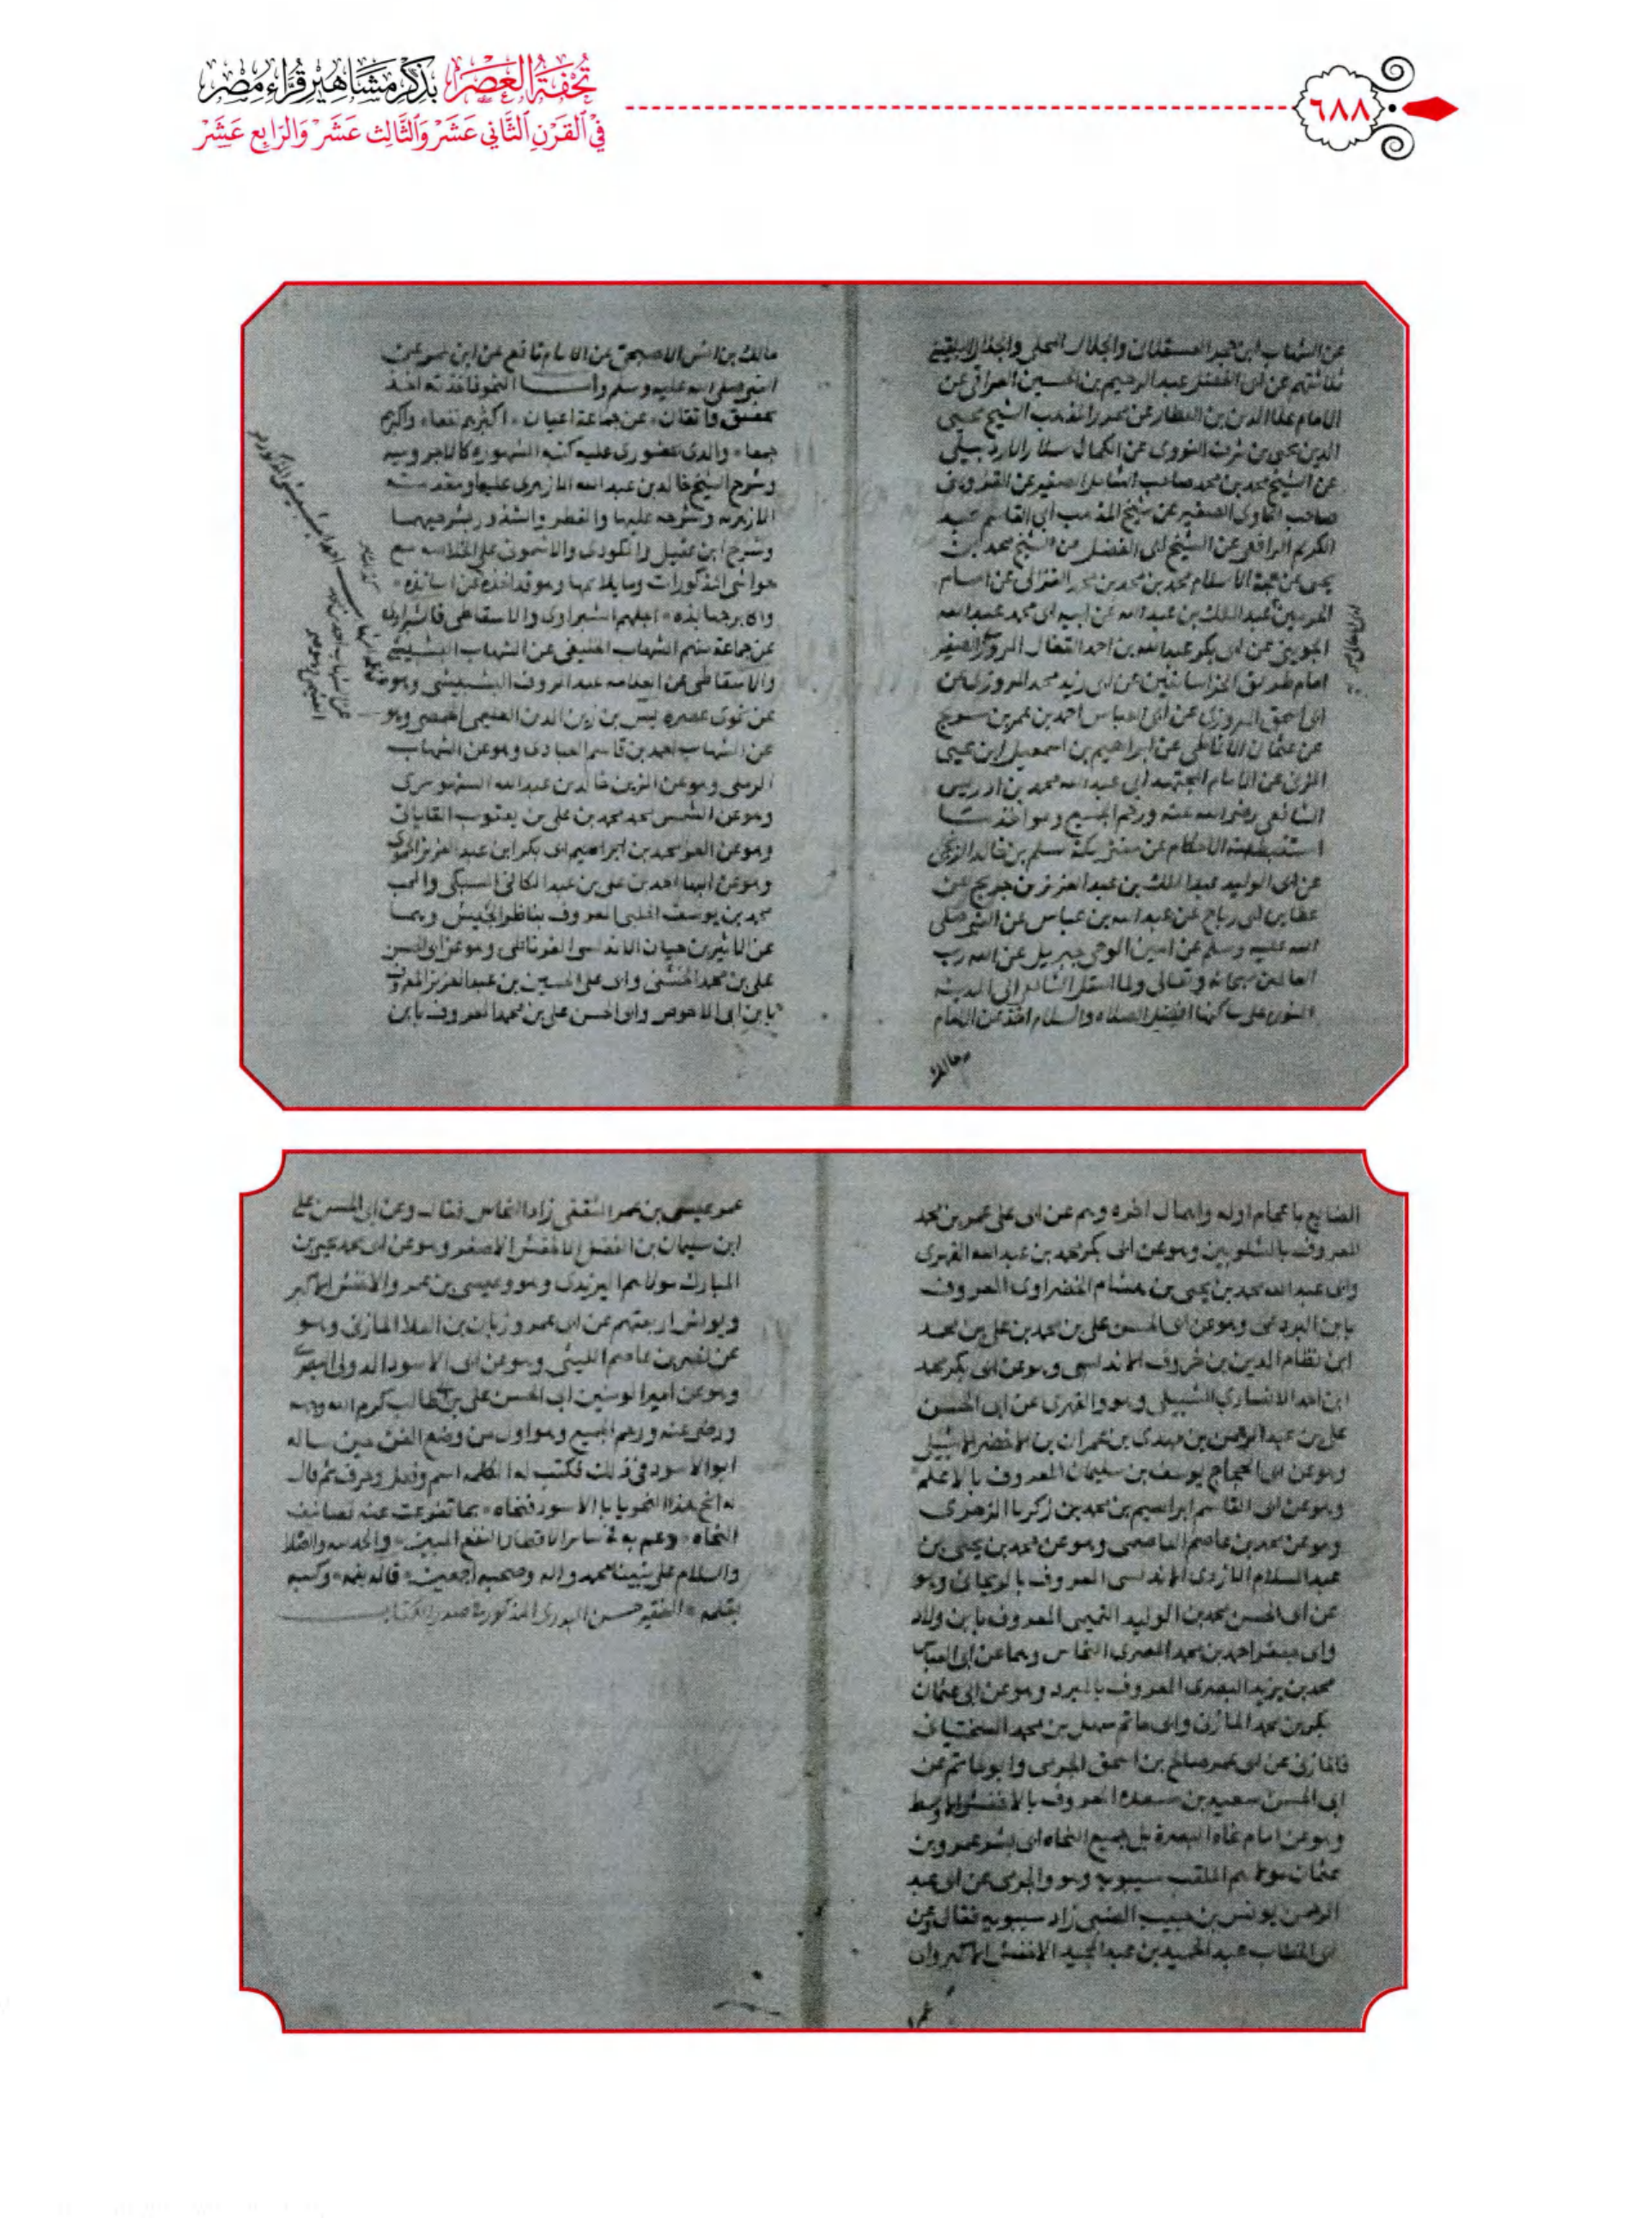 تُحْفَةُ العَصْرِ بِذِكْرِ مَشَاهِيرِ قُرَّاءِ مِصْرَ
فِي القَرْنِ الثَّانِي عَشَرَ وَالثَّالِث عَشَرَ وَالرَّابِع عَشَرَ
٦٨٨
عن الشهاب ابن حجر العسقلانى والجلال المحلى والجلال البلقينى
ثلاثتهم عن ابى الفضل عبد الرحيم بن الحسين العراقى عن
الامام علا الدين بن العطار عن محرر المذهب الشيخ محيى
الدين يحيى بن شرف النووى عن الكمال سلار الاردبيلى
عن الشيخ محمد بن محمد صاحب الشامل الصغير عن القزوينى
صاحب الحاوى الصغير عن شيخ المذهب ابى القاسم عبد
الكريم الرافعى عن الشيخ ابى الفضل عن الشيخ محمد بن
يحيى عن حجة الاسلام محمد بن محمد بن محمد الغزالى عن امام
الحرمين عبد الملك بن عبد الله عن ابيه ابى محمد عبد الله
الجوينى عن ابى بكر عبد الله بن احمد القفال المروزى الصغير
امام طريق الخراسانيين عن ابى زيد محمد المروزى عن
ابى اسحق المروزى عن ابى العباس احمد بن عمر بن سريج
عن عثمان الانماطى عن ابراهيم بن اسمعيل ابن يحيى
المزنى عن الامام المجتهد ابى عبد الله محمد بن ادريس
الشافعى رضى الله عنه ورحم الجميع وهو اخذ
استنبطه الاحكام عن مفتى مكة مسلم بن خالد الزنجى
عن ابى الوليد عبد الملك بن عبد العزيز بن جريج عن
عطا بن ابى رباح عن عبد الله بن عباس عن النبى صلى
الله عليه وسلم عن امين الوحى جبريل عن الله رب
العالمين سبحانه وتعالى ولما انتقل الشافعى الى المدينه
المنوره على ساكنها افضل الصلاه والسلام اخذ عن الامام
مالك
مالك بن انس الاصبحى عن الامام نافع عن ابن عمر عن
النبى صلى الله عليه وسلم وأما النحو فاخذته اخذ
تحقيق واتقان عن جماعة اعيان اكثرهم نفعا واكبرهم
جمعا والدى بحضورى عليه كتبه المشهوره كالاجروميه
وشرح الشيخ خالد بن عبد الله الازهرى عليها ومقدمته
الازهريه وشرحه عليها والقطر والشذور بشرحيهما
وشرح ابن عقيل والمكودى والاشمونى على الخلاصه مع
حواشى المذكورات وما يلائمها وهو قد اخذه عن اساتذه
واكابر جهابذه اجلهم الشبراوى والاسقاطى فالشبراوى
عن جماعة منهم الشهاب الخليفى عن الشهاب البشبيشى
والاسقاطى عن العلامه عبد الروف البشبيشى وهو
عن نحوى عصره يس بن زين الدين العليمى الحمصى وهو
عن الشهاب احمد بن قاسم العبادى وهو عن الشهاب
الرملى وهو عن الزين خالد بن عبد الله السنهورى
وهو عن الشمس محمد بن على بن يعقوب القاياتى
وهو عن العز محمد بن ابراهيم ابى بكر ابن عبد العزيز الحموى
وهو عن البها احمد بن على بن عبد الكافى السبكى والمحب
محمد بن يوسف الحلبى المعروف بناظر الجيش وهما
عن الاثير بن حيان الاندلسى الغرناطى وهو عن ابى الحسن
على بن محمد الخشنى وابى على الحسين بن عبد العزيز المعروف
بابن ابى الاحوص وابو الحسن على بن محمد المعروف بابن
الضايع باعجام اوله واهمال اخره وهم عن ابى على عمر بن محمد
المعروف بالشلوبين وهو عن ابى بكر محمد بن عبد الله الفهرى
وابى عبد الله محمد بن يحيى بن هشام الخضراوى المعروف
بابن البردعى وهو عن ابى الحسن على بن محمد بن على بن محمد
ابن نظام الدين بن خروف الاندلسى وهو عن ابى بكر محمد
ابن احمد الانصارى الشبيلى وهو والفهرى عن ابى الحسن
على بن عبد الرحمن بن مهدى بن عمران بن الاخضر الاشبيلى
وهو عن ابى الحجاج يوسف بن سليمان المعروف بالاعلم
وهو عن ابى القاسم ابراهيم بن محمد بن زكريا الزهرى
وهو عن محمد بن عاصم العاصمى وهو عن محمد بن يحيى بن
عبد السلام الازدى الاندلسى المعروف بالرباحى وهو
عن ابى الحسن محمد بن الوليد التميمى المعروف بابن ولاد
وابى جعفر احمد بن محمد المصرى النحاس وهما عن ابى العباس
محمد بن يزيد البصرى المعروف بالمبرد وهو عن ابى عثمان
بكر بن محمد المازنى وابى حاتم سهل بن محمد السختيانى
فالمازنى عن ابى عمر صالح بن اسحق الجرمى وابو حاتم عن
ابى الحسن سعيد بن مسعدة المعروف بالاخفش الاوسط
وهو عن امام نحاة البصرة بل جميع النحاه ابى بشر عمرو بن
عثمان مولاهم الملقب سيبويه وهو والجرمى عن ابى عبد
الرحمن يونس بن حبيب الضبى زاد سيبويه فقال وعن
ابى الخطاب عبد الحميد بن عبد المجيد الاخفش الاكبر وابى
عمر عيسى بن عمر الثقفى زاد النحاس فقال وعن ابى الحسن على
ابن سليمان بن الفضل الاخفش الاصغر وهو عن ابى محمد يحيى بن
المبارك مولاهم اليزيدى وهو وعيسى بن عمر والاخفش الاكبر
ويونس اربعتهم عن ابى عمرو زبان بن العلا المازنى وهو
عن نصر بن عاصم الليثى وهو عن ابى الاسود الدولى البصرى
وهو عن امير المومنين ابى الحسن على بن ابى طالب كرم الله وجهه
ورضى عنه ورحم الجميع وهو اول من وضع الفن حين ساله
ابو الاسود فى ذلك فكتب له الكلمه اسم وفعل وحرف ثم قال
له انح هذا النحو يا ابا الاسود فنحاه بما تفرعت عنه تصانيف
النحاه وعم به فى سائر الاقطار النفع المبين والحمد لله والصلا
والسلام على نبينا محمد واله وصحبه اجمعين قاله بفمه وكتبه
بقلمه الفقير حسن البدرى المذكور فى صدر الكتاب